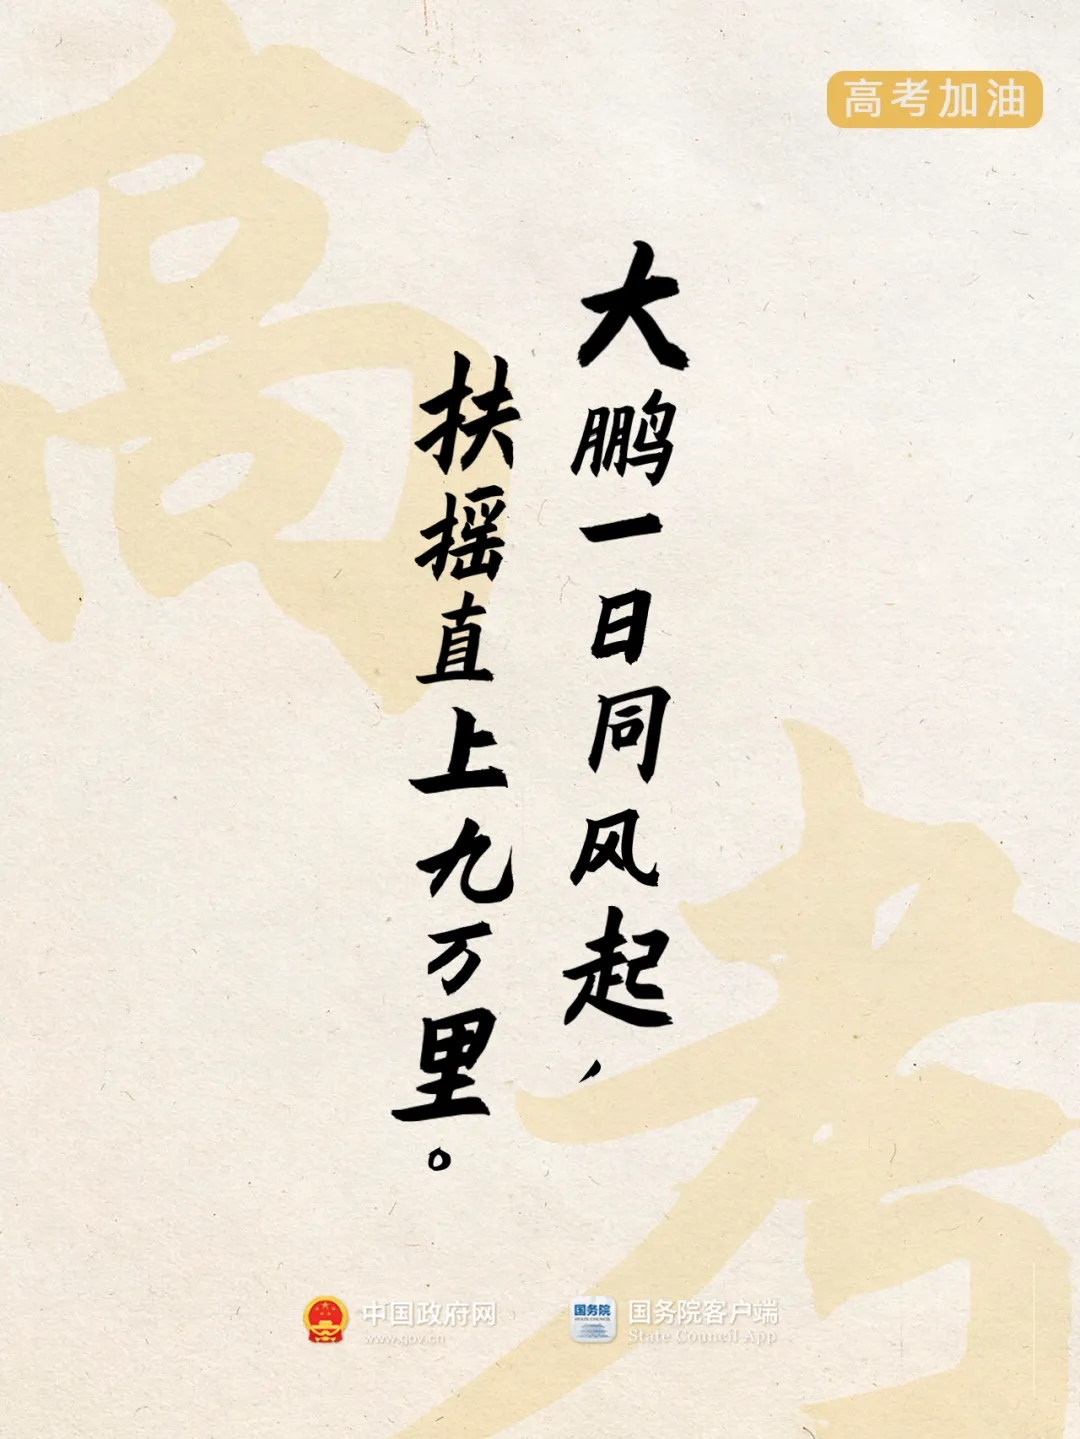 高考加油
高考
大鹏一日同风起，
扶摇直上九万里。
中国政府网
www.gov.cn
国务院
STATE COUNCIL
国务院客户端
State Council App